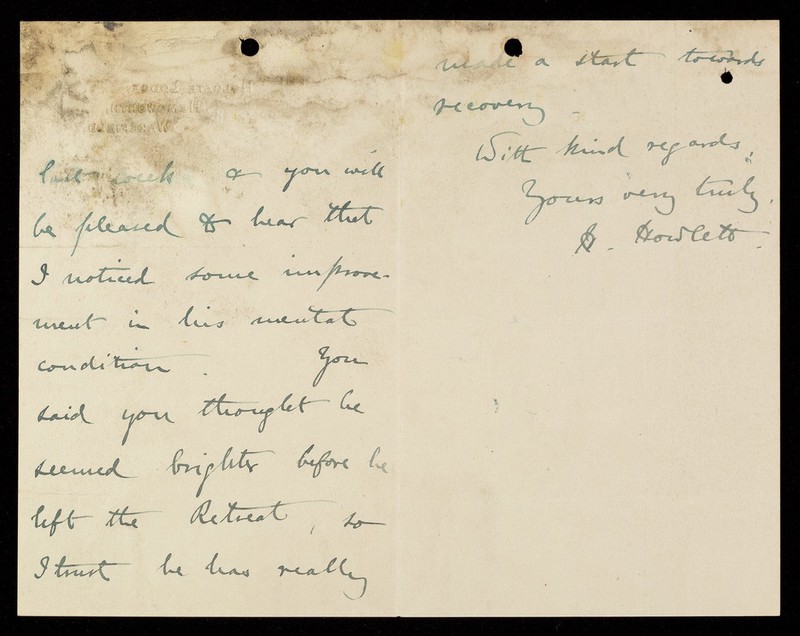 last week & you will
be pleased to hear that
I noticed some improve-
ment in his mental
condition. You
said you thought he
seemed brighter before he
left the Retreat, so
I trust he has really
made a start towards
recovery.
With kind regards,
Yours very truly,
H. Howlett.